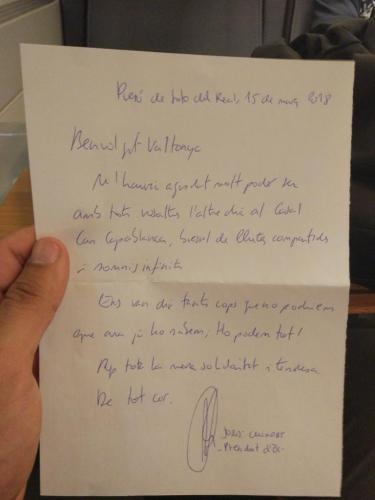 Presó de Soto del Real, 15 de març 2018
Benvolgut Valtonyc
M'hauria agradat molt poder ser
amb tots vosaltres l'altre dia al Casal
Can Capablanca, bressol de lluites compartides
i somnis infinits
Ens van dir tants cops que no podríem
que ara ja ho sabem, Ho podem tot!
Rep tota la meva solidaritat i tendresa
De tot cor.
JORDI CUIXART
President d'Òc